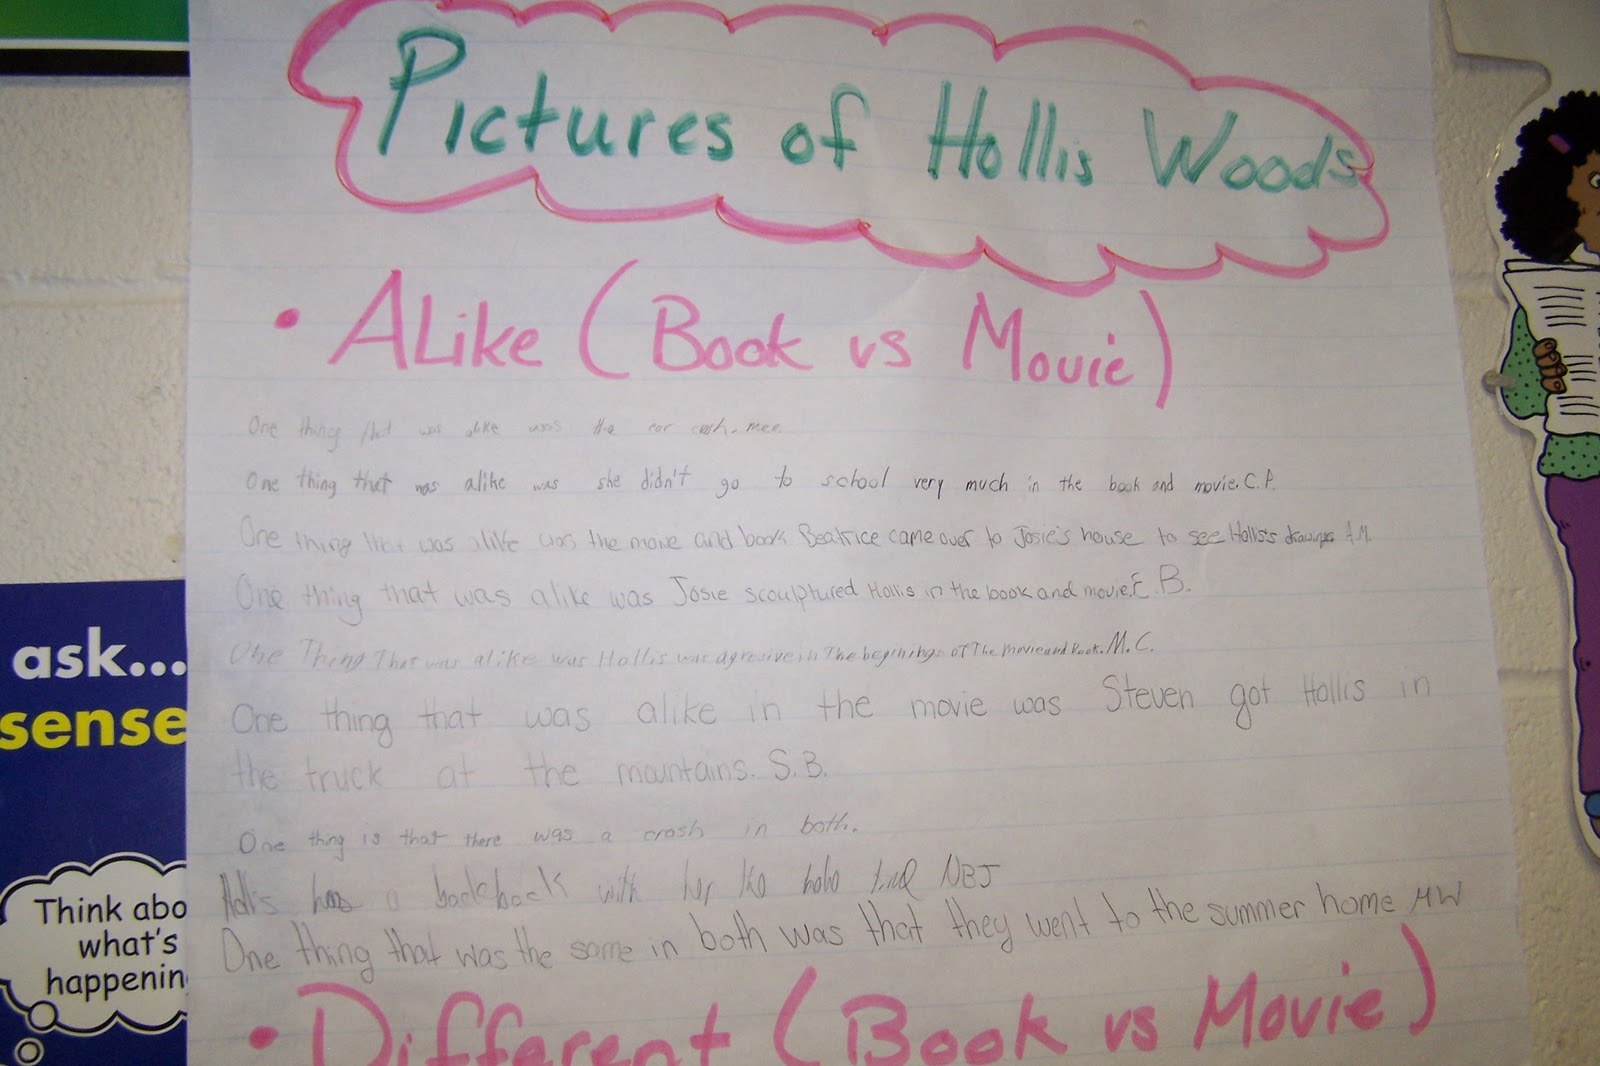 Pictures of Hollis Woods
• ALike (Book vs Movie)
One thing that was alike was the car crash.
One thing that was alike was she didn't go to school very much in the book and movie. C.P.
One thing that was alike was the movie and book Beatrice came over to Josie's house to see Hollis's drawings
One thing that was alike was Josie scoulptured Hollis in the book and movie. E.B.
One Thing That was alike was Hollis was agresive in The beginings of The movie and book. M.C.
One thing that was alike in the movie was Steven got Hollis in
the truck at the mountains. S.B.
One thing is that there was a crash in both.
Hollis has a backback with her
One thing that was the same in both was that they went to the summer home
• Different (Book vs Movie)
ask...
sense
Think abo
what's
happenin